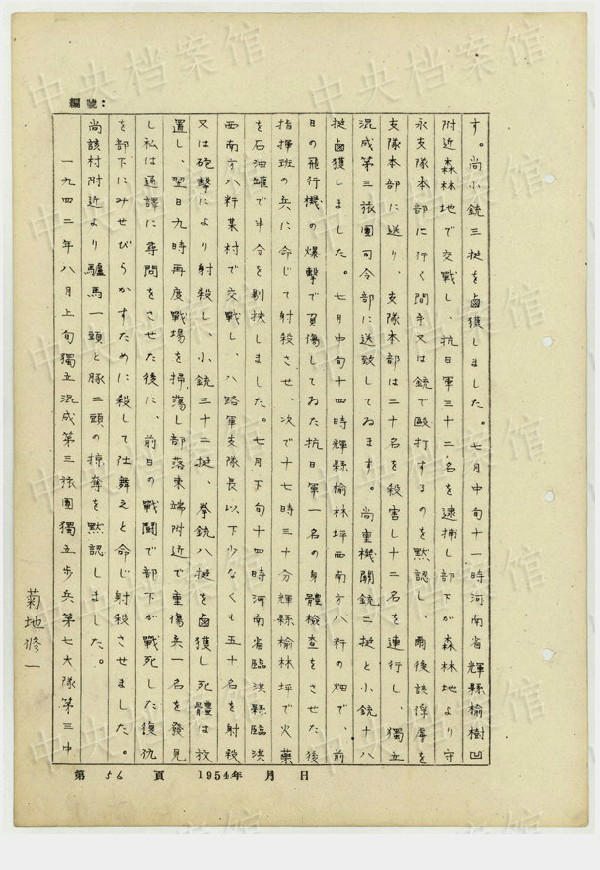 編號：
す。尚小銃三挺を鹵獲しました。七月中旬十一時河南省輝縣榆樹凹
附近森林地で交戰し、抗日軍三十二名を逮捕し部下が森林地より守
永支隊本部に行く間手又は銃で毆打するのを默認し、爾後該俘虜を
支隊本部に送り、支隊本部は二十名を殺害し十二名を連行し、獨立
混成第三旅團司令部に送致してゐます。尚重機關銃二挺と小銃十八
挺鹵獲しました。七月中旬十四時輝縣榆林坪西南方八粁の畑で、前
日の飛行機の爆擊で負傷してゐた抗日軍一名の身體檢查をさせた後
指揮班の兵に命じて射殺させ、次で十七時三十分輝縣榆林坪で火藥
を石油罐で半分を剔抉しました。七月下旬十四時河南省臨淇縣臨淇
西南方八粁某村で交戰し、八路軍支隊長以下少なくも五十名を射殺
又は砲擊により射殺し、小銃三十二挺、拳銃八挺を鹵獲し死體は放
置し、翌日九時再度戰場を掃蕩し部落東端附近で重傷兵一名を發見
し私は通譯に尋問をさせた後に、前日の戰鬪で部下が戰死した復仇
を部下にみせびらかすために殺して仕舞えと命じ射殺させました。
尚該村附近より驢馬一頭と豚二頭の掠奪を默認しました。
一九四二年八月上旬獨立混成第三旅團獨立步兵第七大隊第三中
菊地修一
第 56 頁 1954年 月 日
中央档案馆